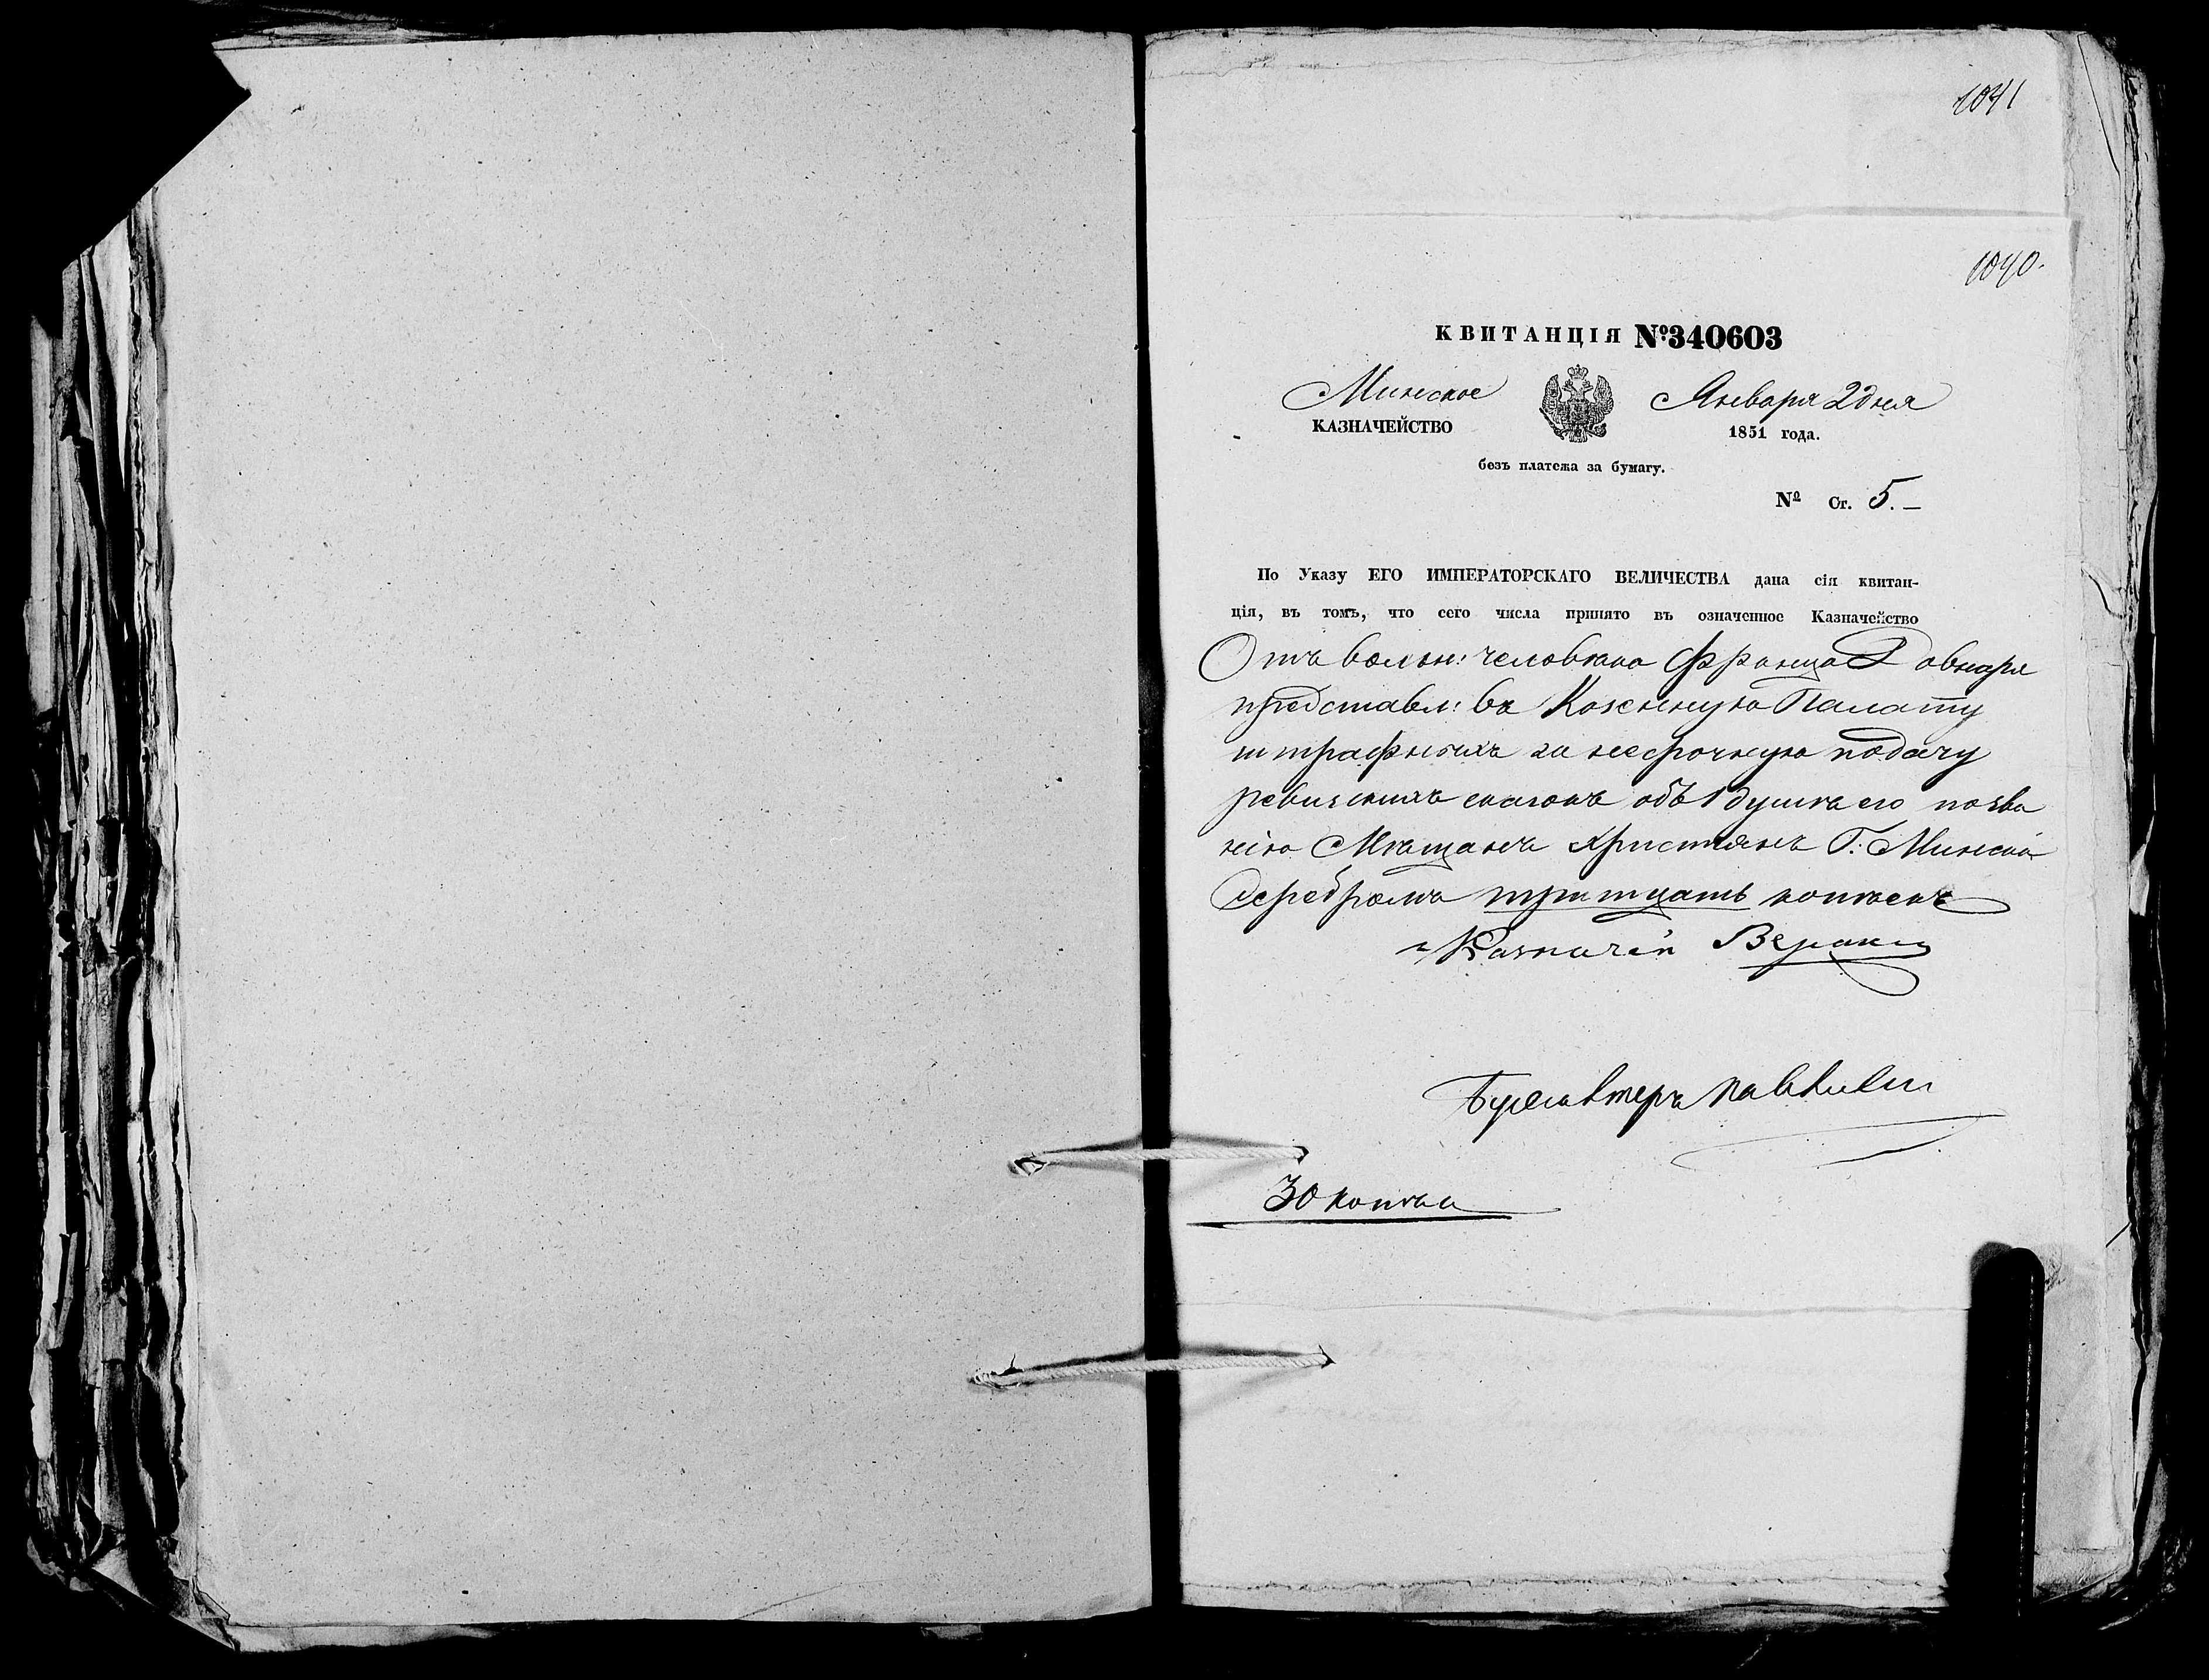 1041
1040.
КВИТАНЦІЯ №340603
Минское Января 2 дня
КАЗНАЧЕЙСТВО 1851 года.
безъ платежа за бумагу.
№ Ст. 5. —
По Указу ЕГО ИМПЕРАТОРСКАГО ВЕЛИЧЕСТВА дана сія квитан-
ція, въ томъ, что сего числа принято въ означенное Казначейство
Отъ вольн: человѣка Франца Довнара
представл: въ Казенную Палату
штрафныхъ за несрочную подачу
ревизскихъ сказокъ объ 1 душѣ его позва
нію Мѣщанъ христіянъ Г. Минска
серебромъ тритцать копѣекъ
Казначей
Бухгалтеръ
30 копѣе